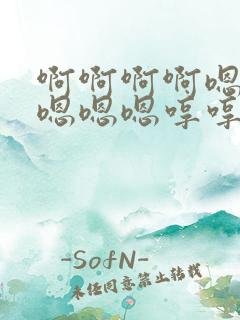 啊啊啊啊嗯
嗯嗯嗯哼哼
-SofN-
未经同意禁止转载